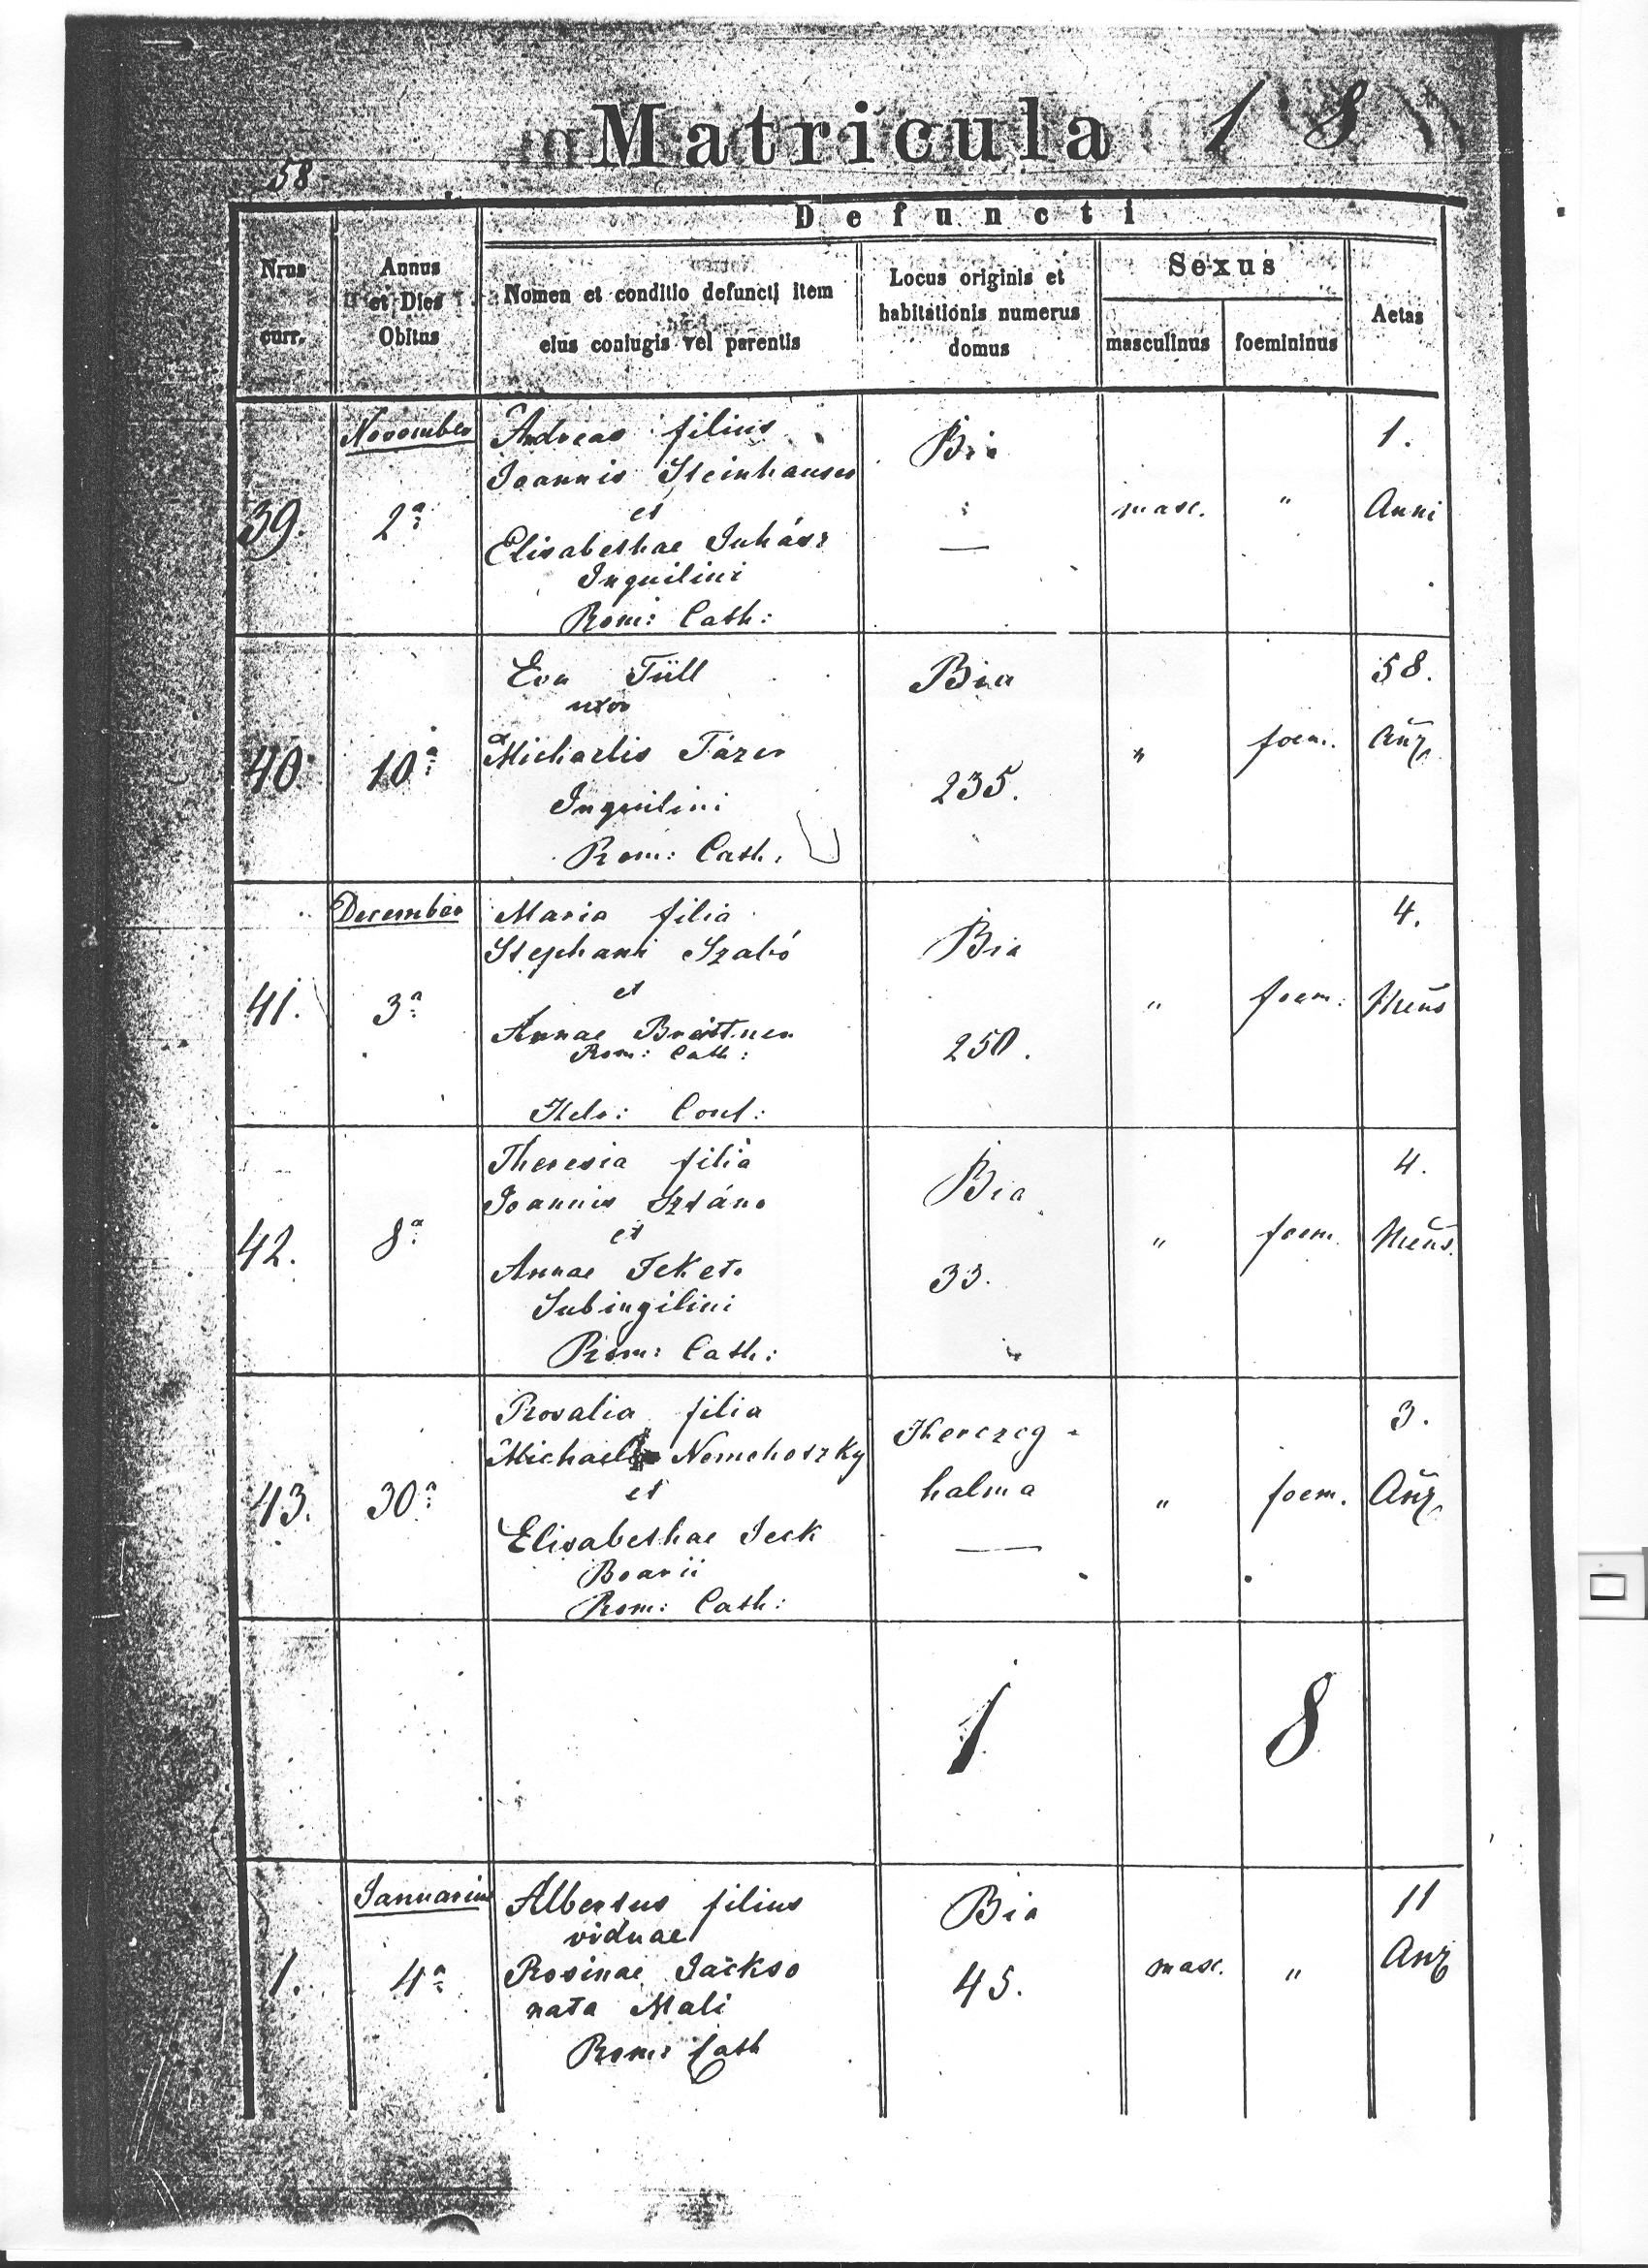 Matricula 18
58
Defuncti
Nrus curr.
Annus et Dies Obitus
Nomen et conditio defuncti item eius coniugis vel parentis
Locus originis et habitationis numerus domus
Sexus
masculinus
foemininus
Aetas
November
Andreas filius
Bia
1.
Joannis Steinhauser
et
39.
2a
masc.
"
Anni
Elisabethae Juhász
—
Inquilini
Rom: Cath:
Eva Tüll
Bia
58.
uxor
Michaelis Tázer
40.
10a
"
foem.
Inquilini
235.
Rom: Cath:
December
Maria filia
Bia
4.
Stephani Szabó
et
41.
3a
"
foem:
Mens
Annae Breitner
250.
Rom: Cath:
Helv: Conf:
Theresia filia
Bia
4.
Joannis
et
42.
8a
"
foem.
Mens.
Annae Fekete
33.
Subinqilini
Rom: Cath:
Rosalia filia
Herczeg-
3.
Michaelis Nemohoszky
halma
et
43.
30a
"
foem.
Elisabethae Jeck
—
Boarii
Rom: Cath:
1 8
Januarius
Albertus filius
Bia
11
viduae
1.
4a
Rosinae
45.
masc.
"
nata Mali
Rom: Cath